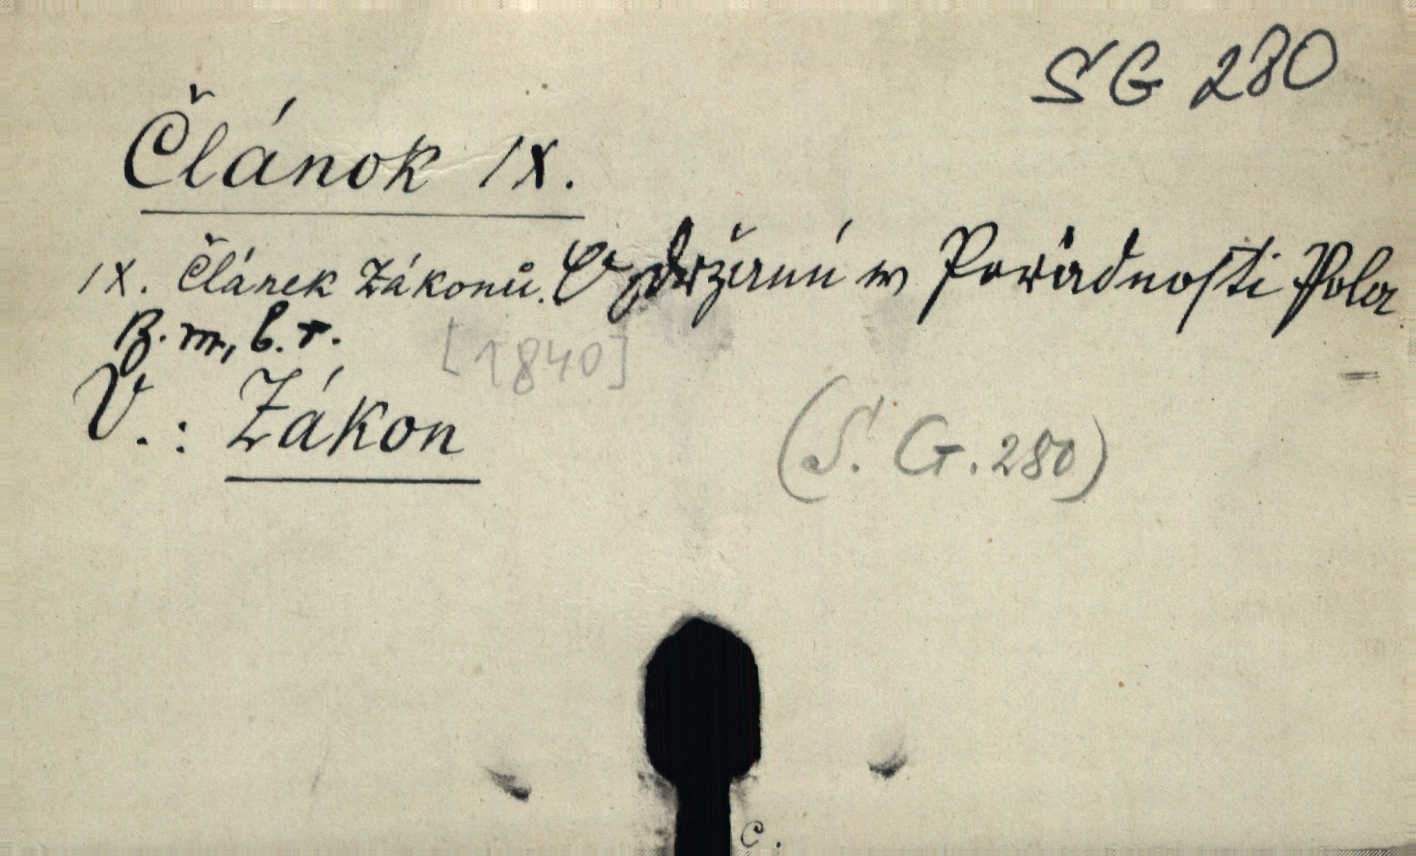 SG 280
Článok IX.
IX. Článek Zákonů. O držanú w Porádnosti Pola
B. m., b. r. [1840]
V.: Zákon
(S. G. 280)
c.